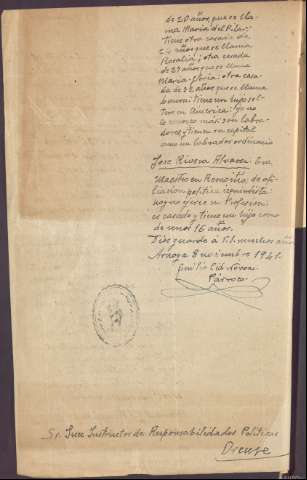 de 20 años, que se lla-
ma Maria del Pilar.
Tiene otra casada de
24 años que se llama
Rosalia; otra casada
de 27 años que se llama
Maria          ; otra casa-
da de 32 años, que se llama
Laura. Tiene un hijo sol-
tero en America. Yo no
le conozco más; son labra-
dores y tienen su capital
como un labrador ordinario
Jose Rivera Alvarez. Era
Maestro en            de afi-
liacion politica izquierdista
hoy no ejerce su Profesion
es casado y tiene un hijo como
de unos 16 años.
Dios guarde a V.S. muchos años
          8 noviembre 1941.
Emilio Cid
Párroco
Sr. Juez Instructor de Responsabilidades Politicas
Orense